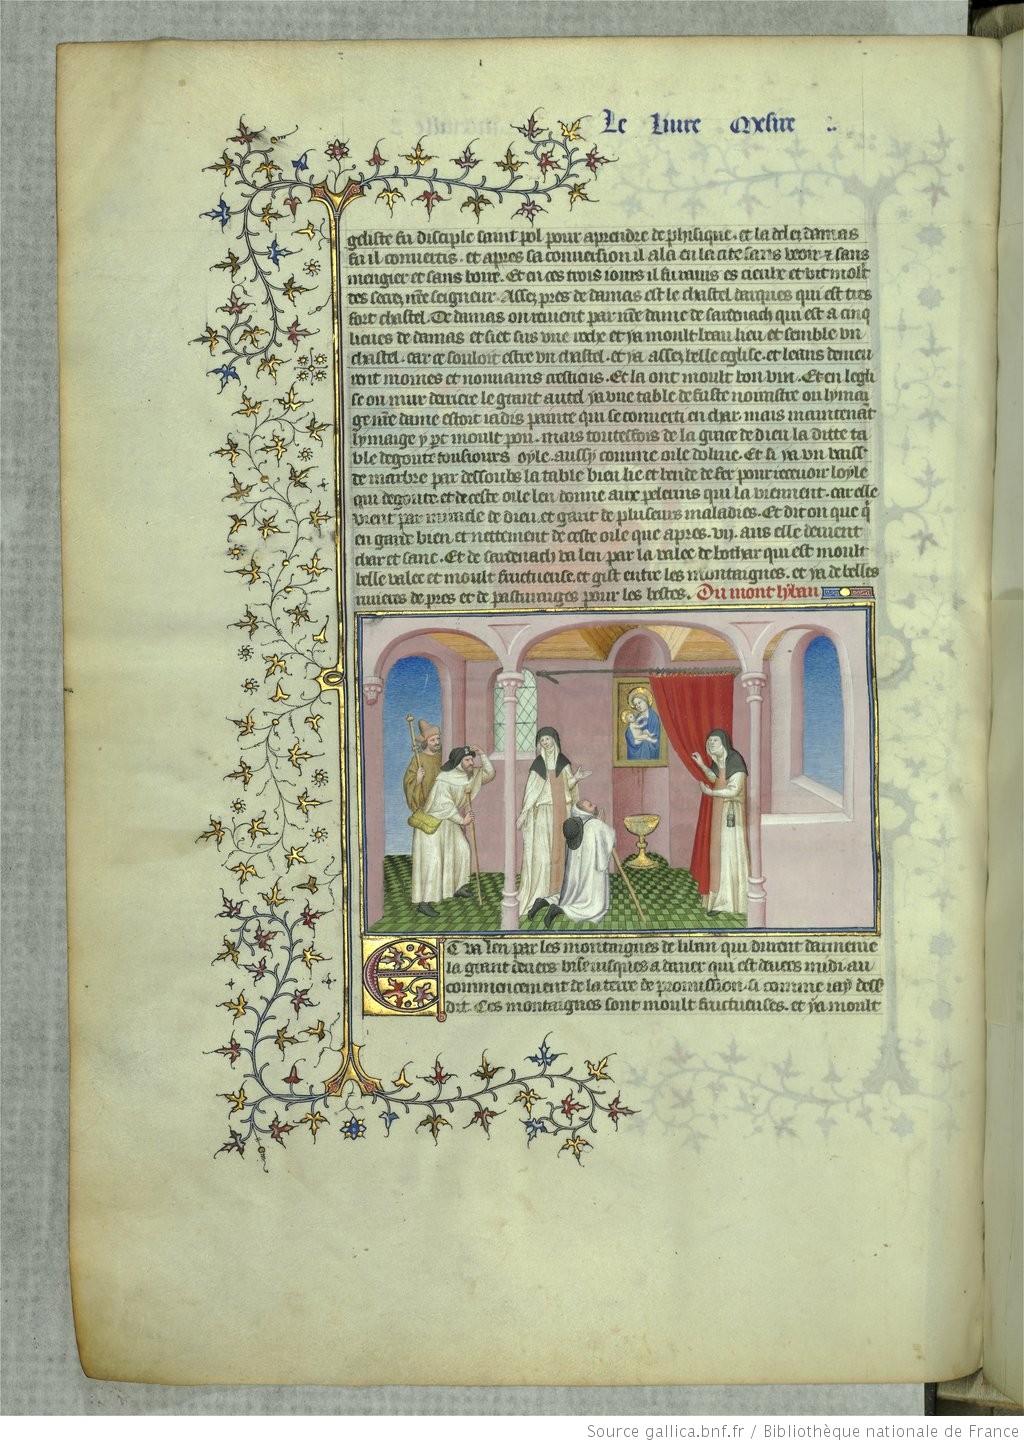 Le liure Messire
geliste fu disciple saint pol pour aprendre de phisique. et la delez damas
fu il conuertis. et apres sa conuersion il ala en la cite sans veoir & sans
mengier et sans boire. Et en ces trois iours il fu rauis es cieulx et vit molt
des secrez nre seigneur. Assez pres de damas est le chastel darques qui est tres
fort chastel. De damas on reuient par nre dame de sardenach qui est a cinq
lieues de damas et siet sus vne roche et ya moult beau lieu et semble vn
chastel. car ce souloit estre vn chastel. et ya assez belle eglise. et leans demeu
rent moines et nonnains crestiens. Et la ont moult bon vin. Et en legli
se ou mur derriere le grant autel ya vne table de fust noirastre ou lymai
ge nre dame estoit iadis painte qui se conuerti en char. mais maintenat
lymaige y pt moult pou. mais toutesfois de la grace de dieu la ditte ta
ble degoute tousiours oyle. aussy comme oile doliue. Et si ya vn vaissel
de marbre par dessoubs la table bien lie et bende de fer pour receuoir loyle
qui degoute. et de ceste oile len donne aux pelerins qui la viennent. car elle
vient par miracle de dieu. et garit de pluseurs maladies. Et dit on que q
en garde bien et nettement de ceste oile que apres .vij. ans elle deuient
char et sanc. Et de sardenach va len par la valee de bothar qui est moult
belle valee et moult fructueuse. et gist entre les montaignes. et ya de belles
riuieres de pres et de pasturages pour les bestes. Du mont lyban
Et va len par les montaignes de liban qui durent darmenie
la grant deuers bise iusques a daner qui est deuers midi au
commencement de la terre de promission. si comme iay dess
dit. Ces montaignes sont moult fructueuses. et ya moult
Source gallica.bnf.fr / Bibliothèque nationale de France